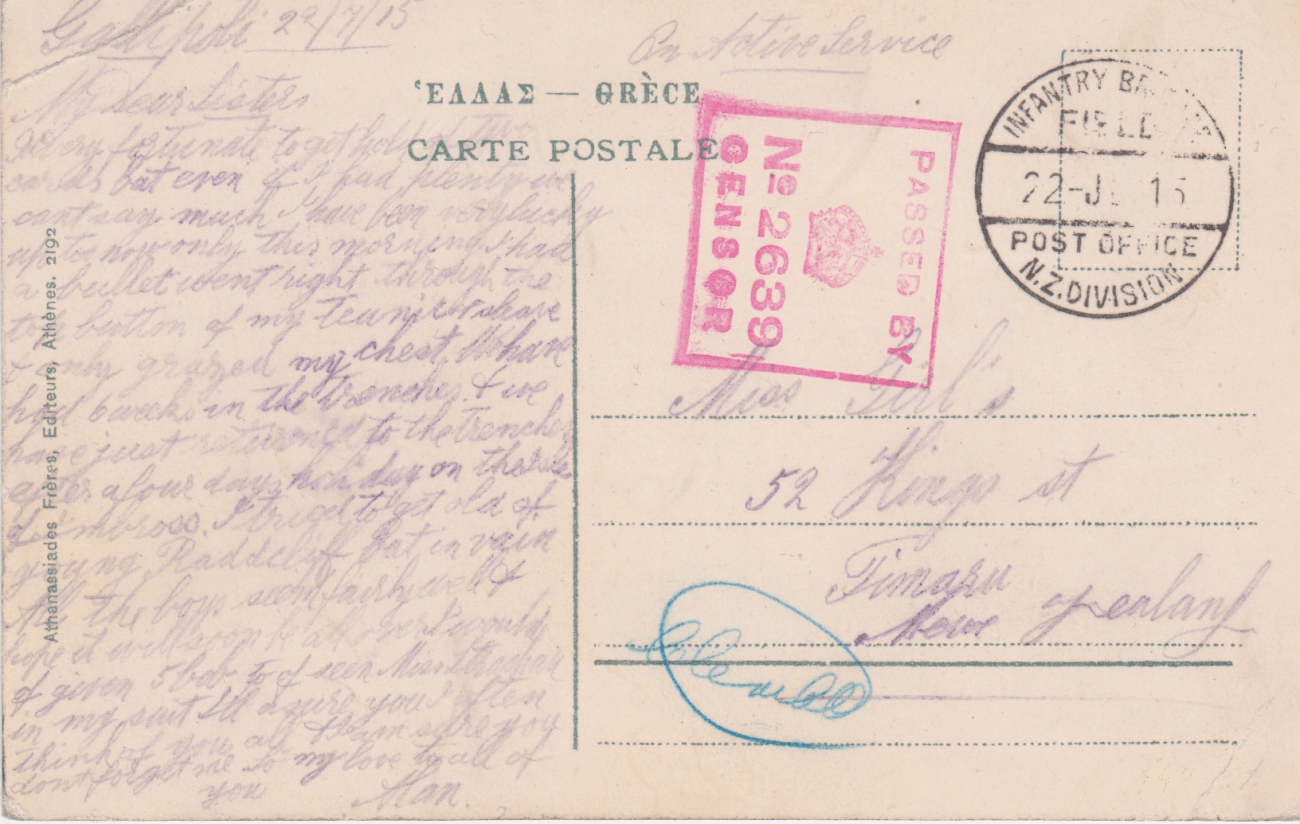 Gallipoli 22/7/15
On Active Service
My Dear Sisters
very fortunate to get hold of
cards bat even if I had plenty we
cant say much I have been very lucky
up to now only this morning I had
a bullet went right through the
top button of my teanic
& only grazed my chest. We have
had weeks in the trenches & we
have just returned to the trenches
after a four days holiday on the isle
of Imbross. I tried to get old of
young Raddcliff bat in vain
All the boys seem fairly well &
hope it will soon be all over I would
of given 5 bob to of seen Miss
in my suit I'll asure you I often
think of you all & I am sure you
dont forget me. So my love to all of
you Alan.
ʽΕΛΛΑΣ — GRÈCE
CARTE POSTALE
Athanassiades Frères, Editeurs, Athènes. 2192
PASSED BY
Nº 2639
CENSOR
INFANTRY
FIELD
22-JL 15
POST OFFICE
N.Z.DIVISION
Miss Girl's
52 Kings st
Timaru
Newe Zealand